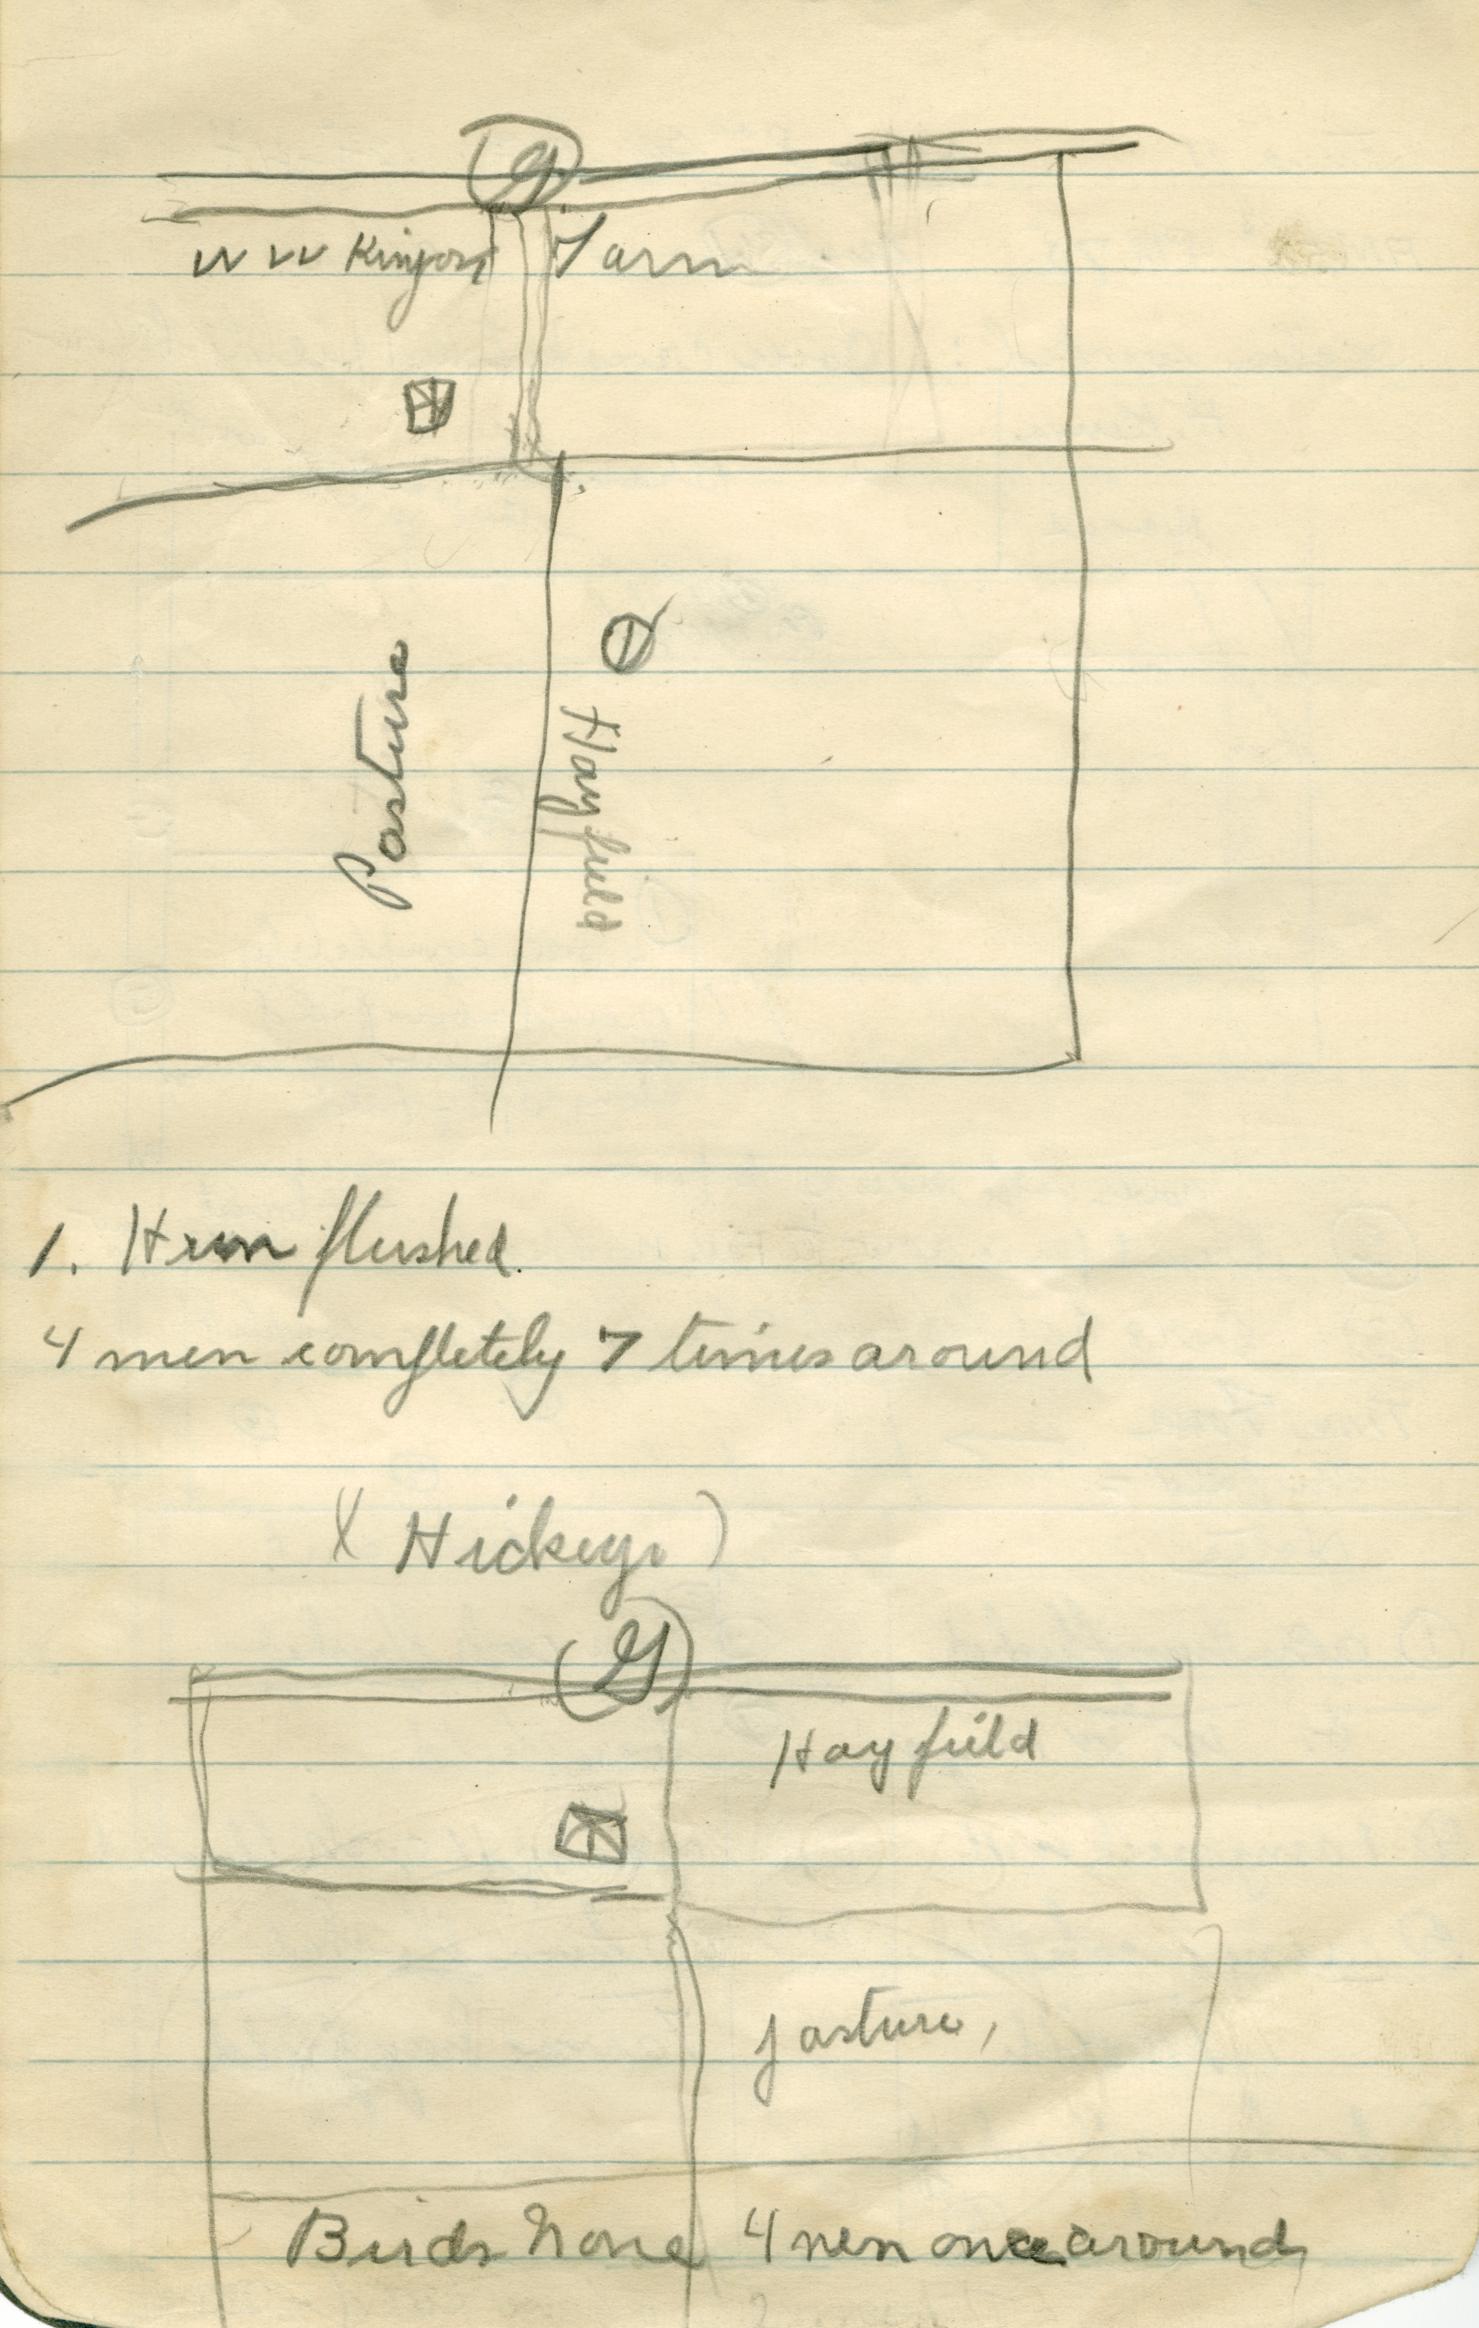 G
W W Kinyons Farm
1
Pasture
Hayfield
1. Hun flushed.
4 men completely 7 times around
(Hickeys)
G
Hayfield
pasture,
Birds None 4 men once around